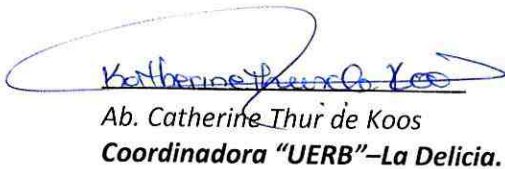 Katherine Thur de Koos
Ab. Catherine Thur de Koos
Coordinadora “UERB”–La Delicia.